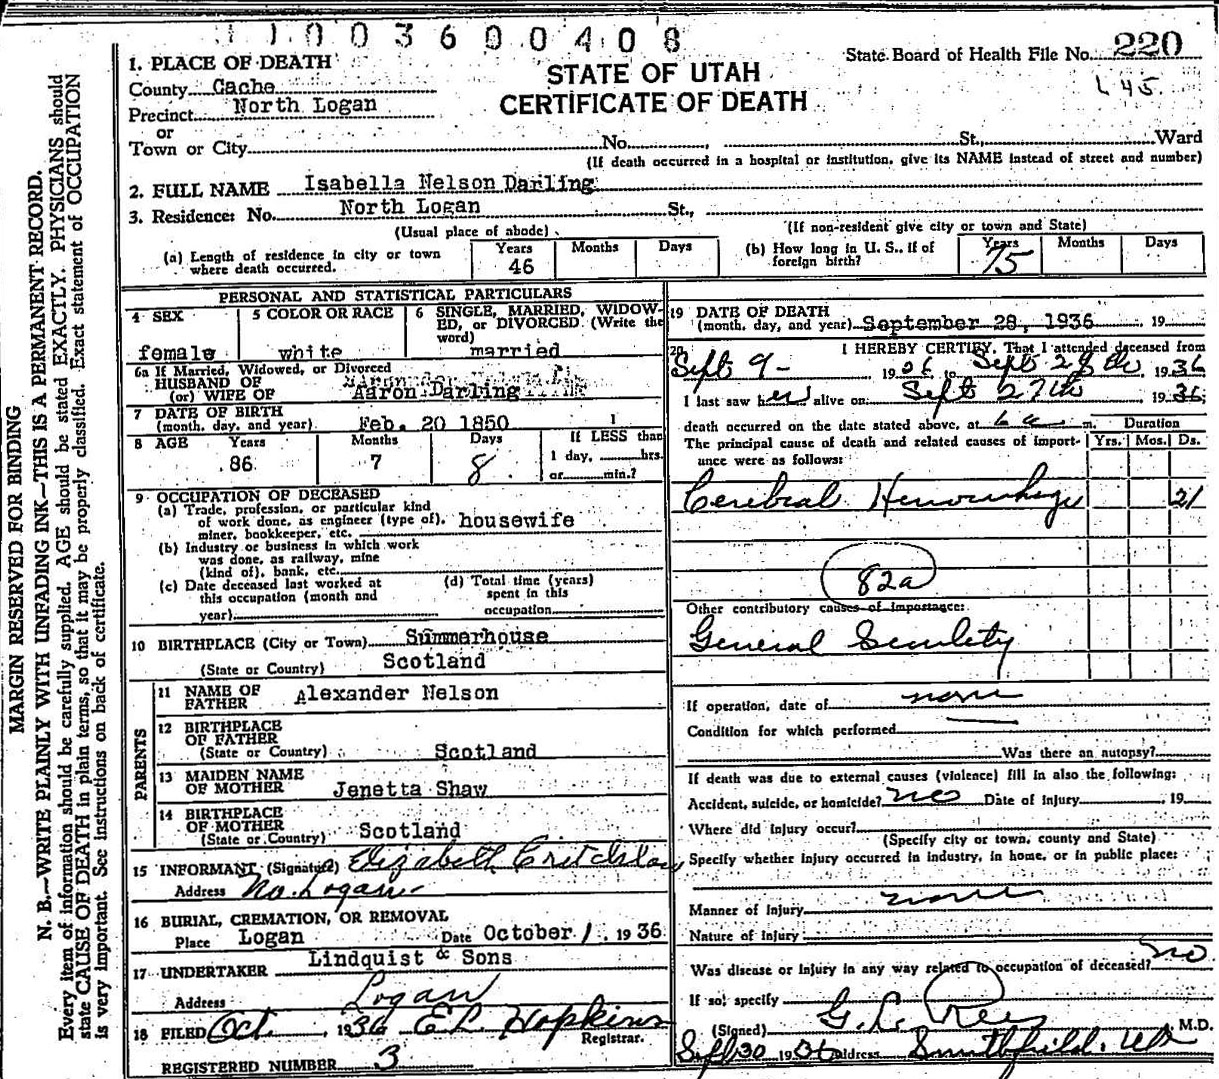 11003600408
State Board of Health File No. 220
L 45
STATE OF UTAH
CERTIFICATE OF DEATH
1. PLACE OF DEATH
County Cache
Precinct North Logan
or
Town or City No. St., Ward
(If death occurred in a hospital or institution, give its NAME instead of street and number)
2. FULL NAME Isabella Nelson Darling
3. Residence: No. North Logan St.,
(Usual place of abode) (If non-resident give city or town and State)
(a) Length of residence in city or town where death occurred. Years 46 Months Days
(b) How long in U. S., if of foreign birth? Years 75 Months Days
PERSONAL AND STATISTICAL PARTICULARS
4 SEX female
5 COLOR OR RACE white
6 SINGLE, MARRIED, WIDOWED, or DIVORCED (Write the word) married
6a If Married, Widowed, or Divorced
HUSBAND OF
(or) WIFE OF Aaron Darling
7 DATE OF BIRTH
(month, day, and year) Feb. 20 1850
8 AGE Years 86 Months 7 Days 8
If LESS than 1 day, hrs. or min.?
9 OCCUPATION OF DECEASED
(a) Trade, profession, or particular kind
of work done, as engineer (type of), housewife
miner, bookkeeper, etc.
(b) Industry or business in which work
was done, as railway, mine
(kind of), bank, etc.
(c) Date deceased last worked at
this occupation (month and
year)
(d) Total time (years)
spent in this
occupation
10 BIRTHPLACE (City or Town) Summerhouse
(State or Country) Scotland
PARENTS
11 NAME OF FATHER Alexander Nelson
12 BIRTHPLACE OF FATHER
(State or Country) Scotland
13 MAIDEN NAME OF MOTHER Jenetta Shaw
14 BIRTHPLACE OF MOTHER
(State or Country) Scotland
15 INFORMANT (Signature) Elizabeth Critchlow
Address No. Logan
16 BURIAL, CREMATION, OR REMOVAL
Place Logan Date October 1. 1936
17 UNDERTAKER Lindquist & Sons
Address Logan
18 FILED Oct. , 1936 E L Hopkins
Registrar.
REGISTERED NUMBER 3
19 DATE OF DEATH
(month, day, and year) September 28, 1936 19
20 I HEREBY CERTIFY, That I attended deceased from
Sept 9 - 1936 to Sept 28th, 1936
I last saw her alive on Sept 27th 1936;
death occurred on the date stated above, at 6 a m. Duration
The principal cause of death and related causes of importance were as follows: Yrs. Mos. Ds.
Cerebral Hemorrhage 21
82a
Other contributory causes of importance:
General Senility
If operation, date of none
Condition for which performed
Was there an autopsy?
If death was due to external causes (violence) fill in also the following:
Accident, suicide, or homicide? no Date of Injury , 19
Where did injury occur?
(Specify city or town, county and State)
Specify whether injury occurred in industry, in home, or in public place:
Manner of Injury none
Nature of Injury
Was disease or injury in any way related to occupation of deceased? no
If so, specify
(Signed) G. L. Rees, M.D.
Sept 30 1936 Address Smithfield, Ut
MARGIN RESERVED FOR BINDING
N. B.—WRITE PLAINLY WITH UNFADING INK—THIS IS A PERMANENT RECORD.
Every item of information should be carefully supplied. AGE should be stated EXACTLY. PHYSICIANS should
state CAUSE OF DEATH in plain terms, so that it may be properly classified. Exact statement of OCCUPATION
is very important. See instructions on back of certificate.